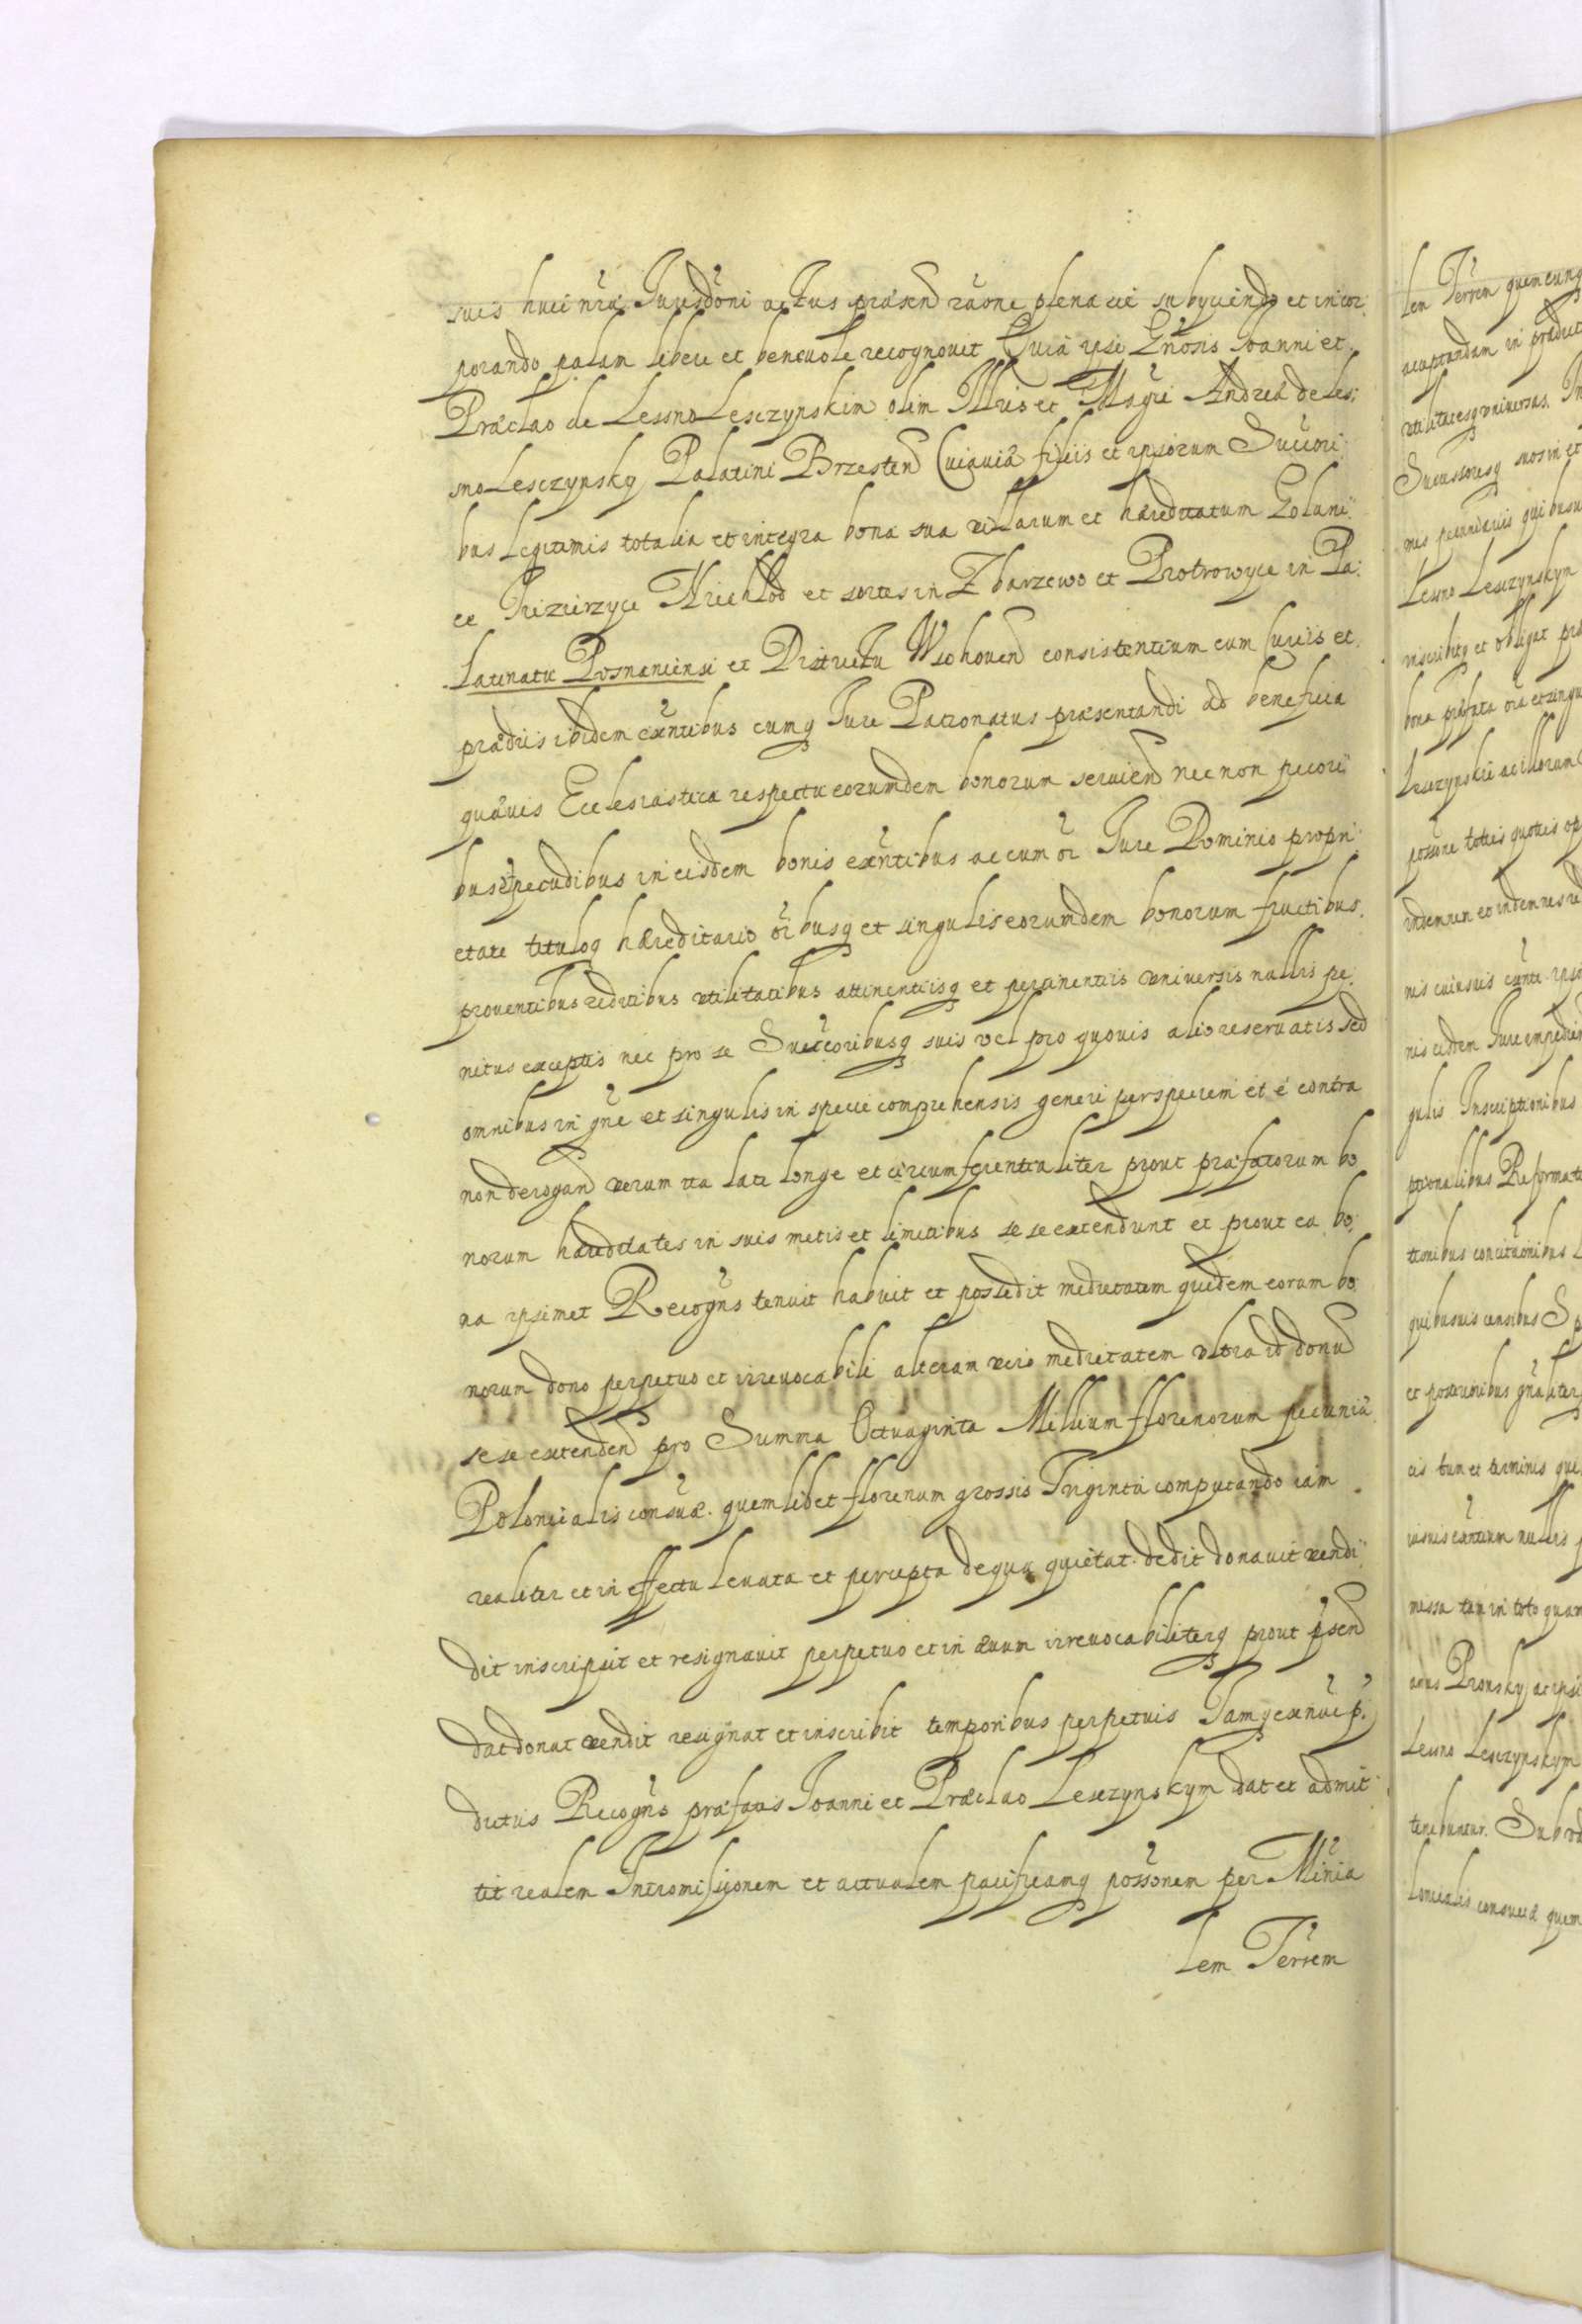 suis huic nrae Jurisdõni actus praesend rãone plenarie subyciendo et incor
porando palam libere et benevole recognovit Quia ipse Gnosis Joanni et
Praeclao de Lessno Lesczynskim olim Illris et Magci Andreae de Les:
sno Lesczynsky Palatini Brzesten Cuiaviae filiis et ipsorum Succori
bus legitimis totalia et integra bona sua villarum et haereditatum Golani
ce Niechlod et sortes in Zbarzewo et Piotrowyce in Pa:
latinatu Posnaniensi et Districtu Wschoven consistentium cum curiis et
praediis ibidem exñtibus cumq Jure Patronatus praesentandi ad beneficia
quaevis Ecclesiastica respectu eorumdem bonorum servien nec non pecori
bus et pecudibus in eisdem bonis exñtibus ac cum oi Jure Dominio propri
etate tituloq haereditario oibusq et singulis eorumdem bonorum fructibus
proventibus reditibus utilitatibus attinentiisq et pertinentiis universis nullis pe
nitus exceptis nec pro se Succoribusq suis vel pro quovis alio reservatis sed
omnibus in gne et singulis in specie comprehensis generi per speciem et è contra
non derogand verum ita late longe et circumferentialiter prout praefatorum bo
norum haereditates in suis metis et limitibus sese extendunt et prout ea bo:
na ipsemet Recogns tenuit habuit et possedit medietatem quidem eorum bo
norum dono perpetuo et irrevocabili alteram vero medietatem ultra id donu
sese extenden pro Summa Octuaginta Millium florenorum pecuniae
Polonicalis consuae. quemlibet florenum grossis Triginta computando iam
realiter et in effectu levata et percepta de qua quietat. dedit donavit vendi
dit inscripsit et resignavit perpetuo et in aevum irrevocabiliterq prout psend
dat donat vendit resignat et inscribit temporibus perpetuis
dictus Recogns praefatis Joanni et Praeclao Lesczynskym dat et admit
tit realem Intromissionem et actualem pacificamq possonem per Minia
lem Terrem
len Terrem quemcunq
acceptandam in praedict
utilitatesq universas. In
Successoresq suos in et
nes pecuniariis quibusu
Lessno Lesczynskym
inscribitq et obligat pro
bona praefata oia et singu
Lesczynskie ac illorum
possone toties quoties op
indemnem et indemnes
nis cuiusvis exnte ipso
nis eisdem Jure impedien
gulis Inscriptionibus
ptionalibus Reformato
tionibus
quibusvis censibus
et posterioribus gnaliter
cis tum et terminis que
iusvis exntium nullis
missa tam in toto quam
anus Pronsky ac ipsi
Lessno Lesczynskym
tenebuntur. Sub va
lonicalis consuetae quem